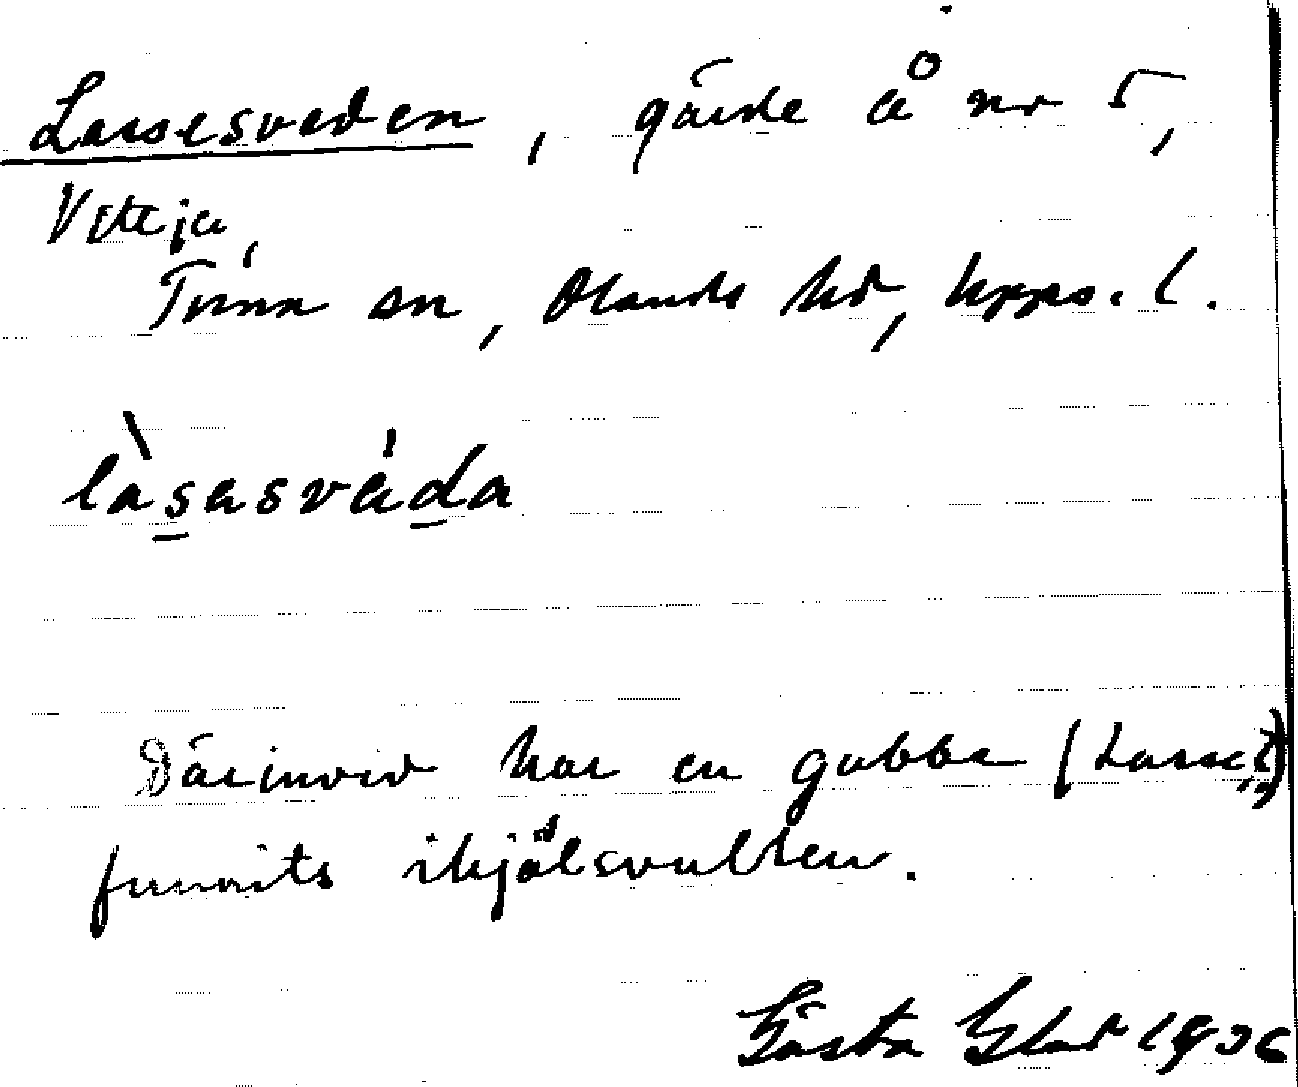 Lassesveden, gärde å nr 5,
Vitteja,
Tuna sn, Olands hd, Upps. l.
làsasvȧda
Därinvid har en gubbe (Lasse?)
funnits ihjälsvulten.
Gösta Glad 1936